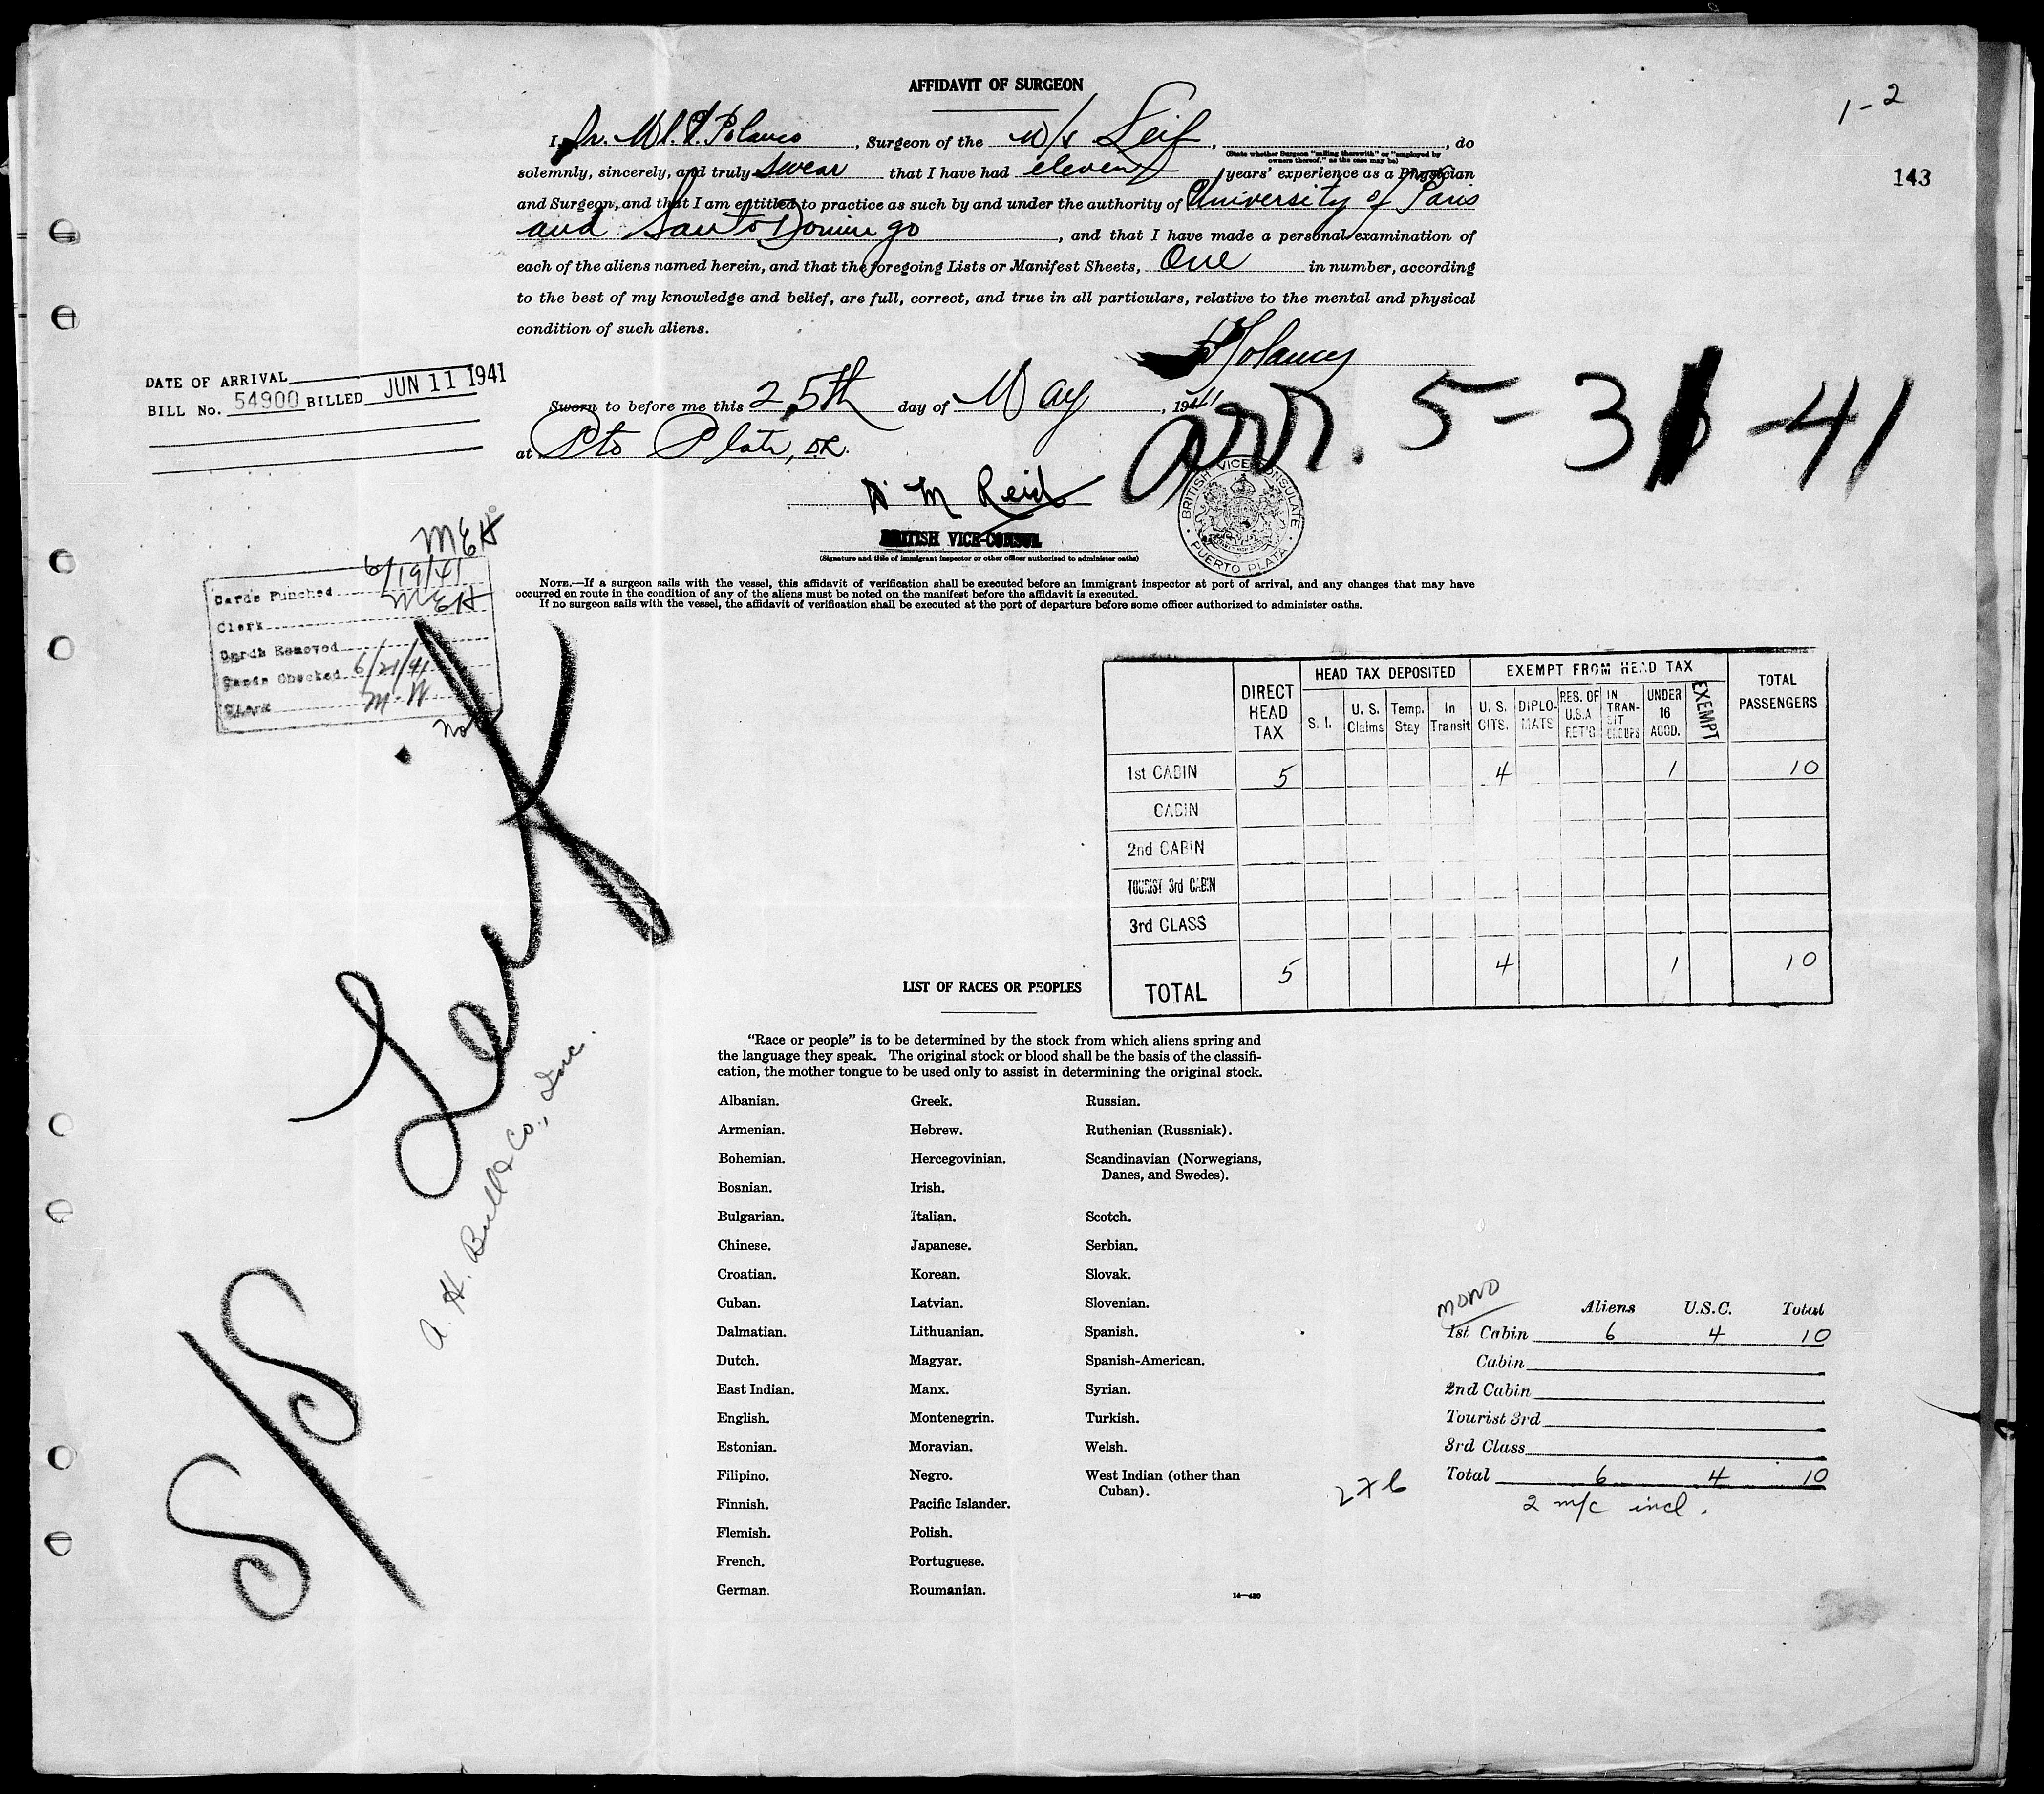 AFFIDAVIT OF SURGEON
1-2
143
I, Dr. Ml. F. Polanco, Surgeon of the M/s Leif, , do
(State whether Surgeon "sailing therewith" or "employed by owners thereof," as the case may be)
solemnly, sincerely, and truly swear that I have had eleven years' experience as a Physician
and Surgeon, and that I am entitled to practice as such by and under the authority of University of Paris
and Santo Domingo, and that I have made a personal examination of
each of the aliens named herein, and that the foregoing Lists or Manifest Sheets, One in number, according
to the best of my knowledge and belief, are full, correct, and true in all particulars, relative to the mental and physical
condition of such aliens.
Polanco
DATE OF ARRIVAL
BILL No. 54900 BILLED JUN 11 1941
Sworn to before me this 25th day of May, 1941
at Pto Plata, D.R.
arr. 5-31-41
H M Reid
BRITISH VICE-CONSUL
(Signature and title of immigrant inspector or other officer authorized to administer oaths)
BRITISH VICE CONSULATE
PUERTO PLATA
NOTE.—If a surgeon sails with the vessel, this affidavit of verification shall be executed before an immigrant inspector at port of arrival, and any changes that may have
occurred en route in the condition of any of the aliens must be noted on the manifest before the affidavit is executed.
If no surgeon sails with the vessel, the affidavit of verification shall be executed at the port of departure before some officer authorized to administer oaths.
MEH
Cards Punched 6/19/41
Clerk MEH
Cards Removed
Cards Checked 6/21/41
Clerk M-W
Not
S/S Leif
A. H. Bull & Co., Inc.
DIRECT HEAD TAX
HEAD TAX DEPOSITED
EXEMPT FROM HEAD TAX
TOTAL PASSENGERS
S. I. U. S. Claims Temp. Stay In Transit U. S. CITS. DIPLO-MATS RES. OF U.S.A RET'G IN TRAN-SIT GROUPS UNDER 16 ACOD. EXEMPT
1st CABIN 5 4 1 10
CABIN
2nd CABIN
TOURIST 3rd CABIN
3rd CLASS
TOTAL 5 4 1 10
LIST OF RACES OR PEOPLES
"Race or people" is to be determined by the stock from which aliens spring and
the language they speak. The original stock or blood shall be the basis of the classifi-
cation, the mother tongue to be used only to assist in determining the original stock.
Albanian. Greek. Russian.
Armenian. Hebrew. Ruthenian (Russniak).
Bohemian. Hercegovinian. Scandinavian (Norwegians,
Danes, and Swedes).
Bosnian. Irish.
Bulgarian. Italian. Scotch.
Chinese. Japanese. Serbian.
Croatian. Korean. Slovak.
Cuban. Latvian. Slovenian.
Dalmatian. Lithuanian. Spanish.
Dutch. Magyar. Spanish-American.
East Indian. Manx. Syrian.
English. Montenegrin. Turkish.
Estonian. Moravian. Welsh.
Filipino. Negro. West Indian (other than
Cuban).
Finnish. Pacific Islander.
Flemish. Polish.
French. Portuguese.
German. Roumanian.
14—430
MONO
Aliens U.S.C. Total
1st Cabin 6 4 10
Cabin
2nd Cabin
Tourist 3rd
3rd Class
Total 6 4 10
2 m/c incl.